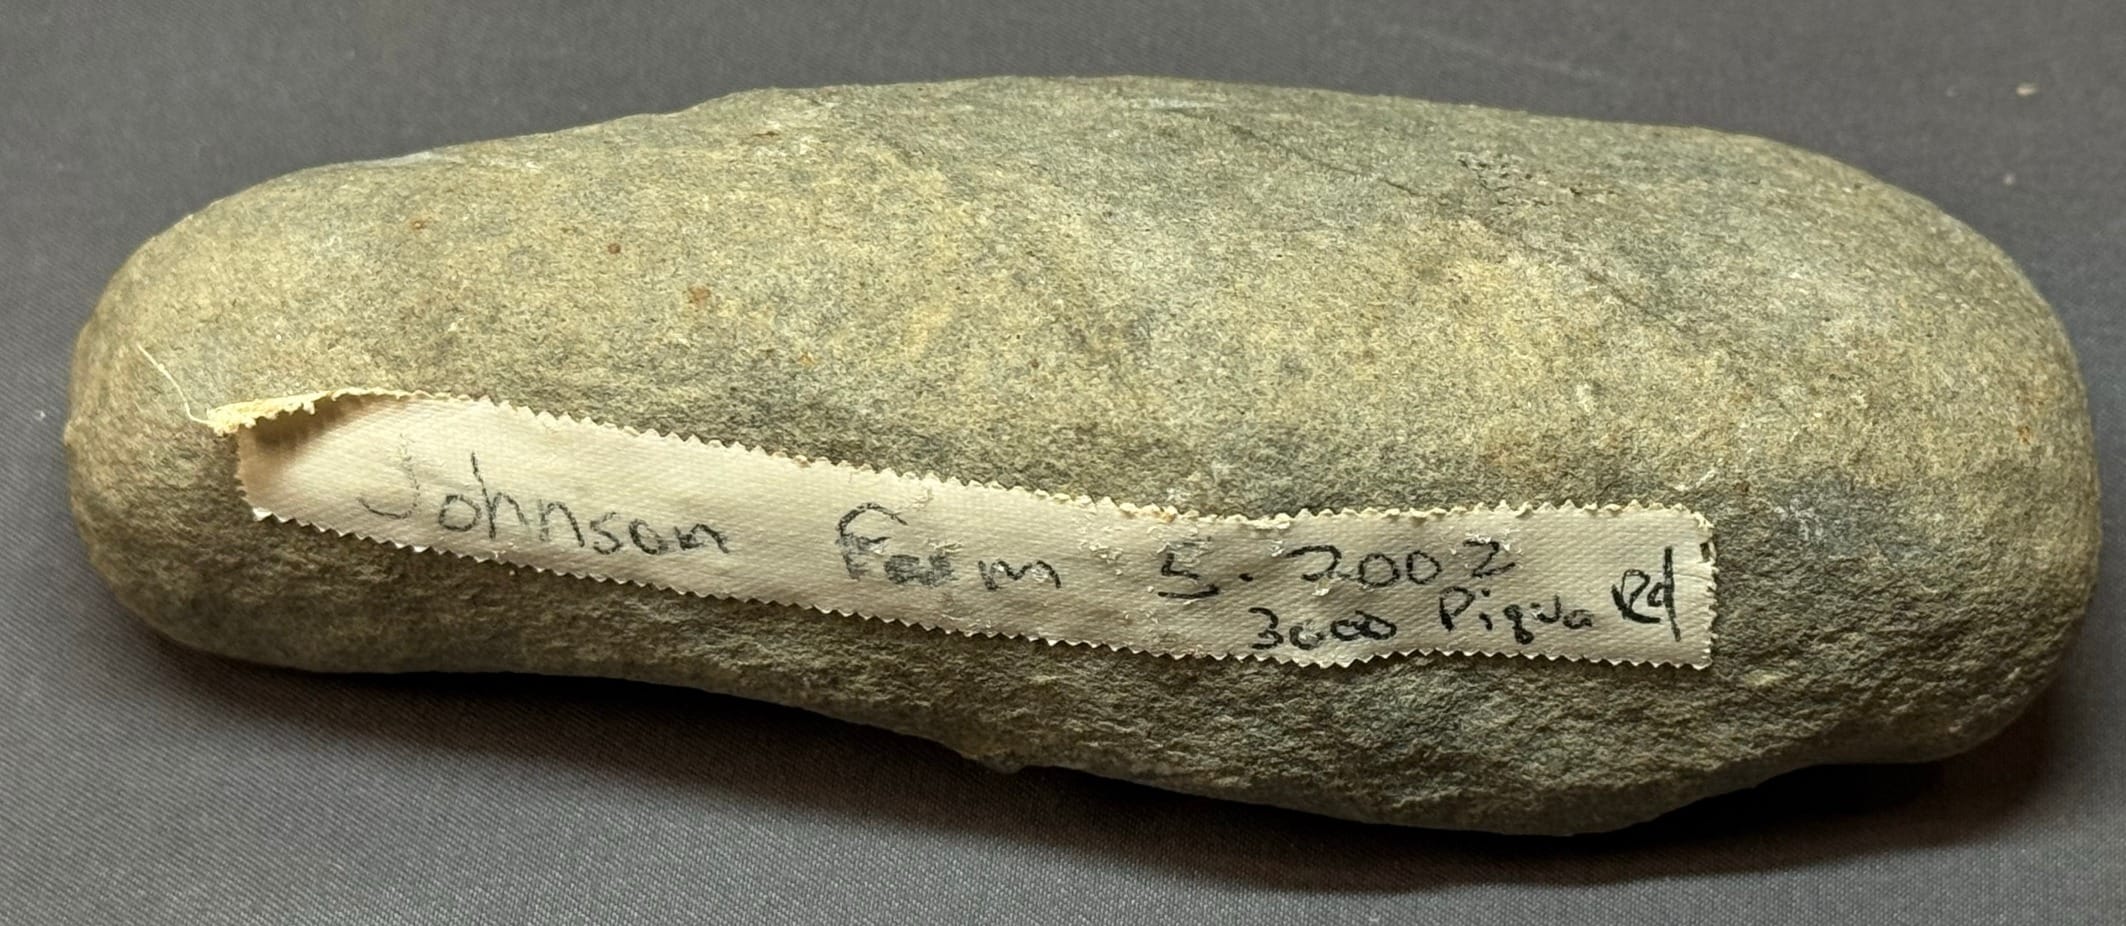 Johnson Farm 5.2002
3000 Piqua Rd